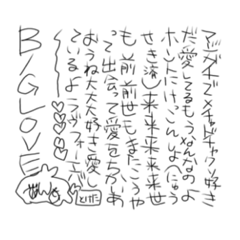 マジガチでメチャドチャクソ好き
だ愛してるもうなんなのよ
ホントにけっこんしよ(にゅう
せき済)来来来来来世
も前前前世もまたこうや
って出会って愛をちかいあ
おうね大大大好き愛し
ているよラブフォーエバー
BIG LOVE